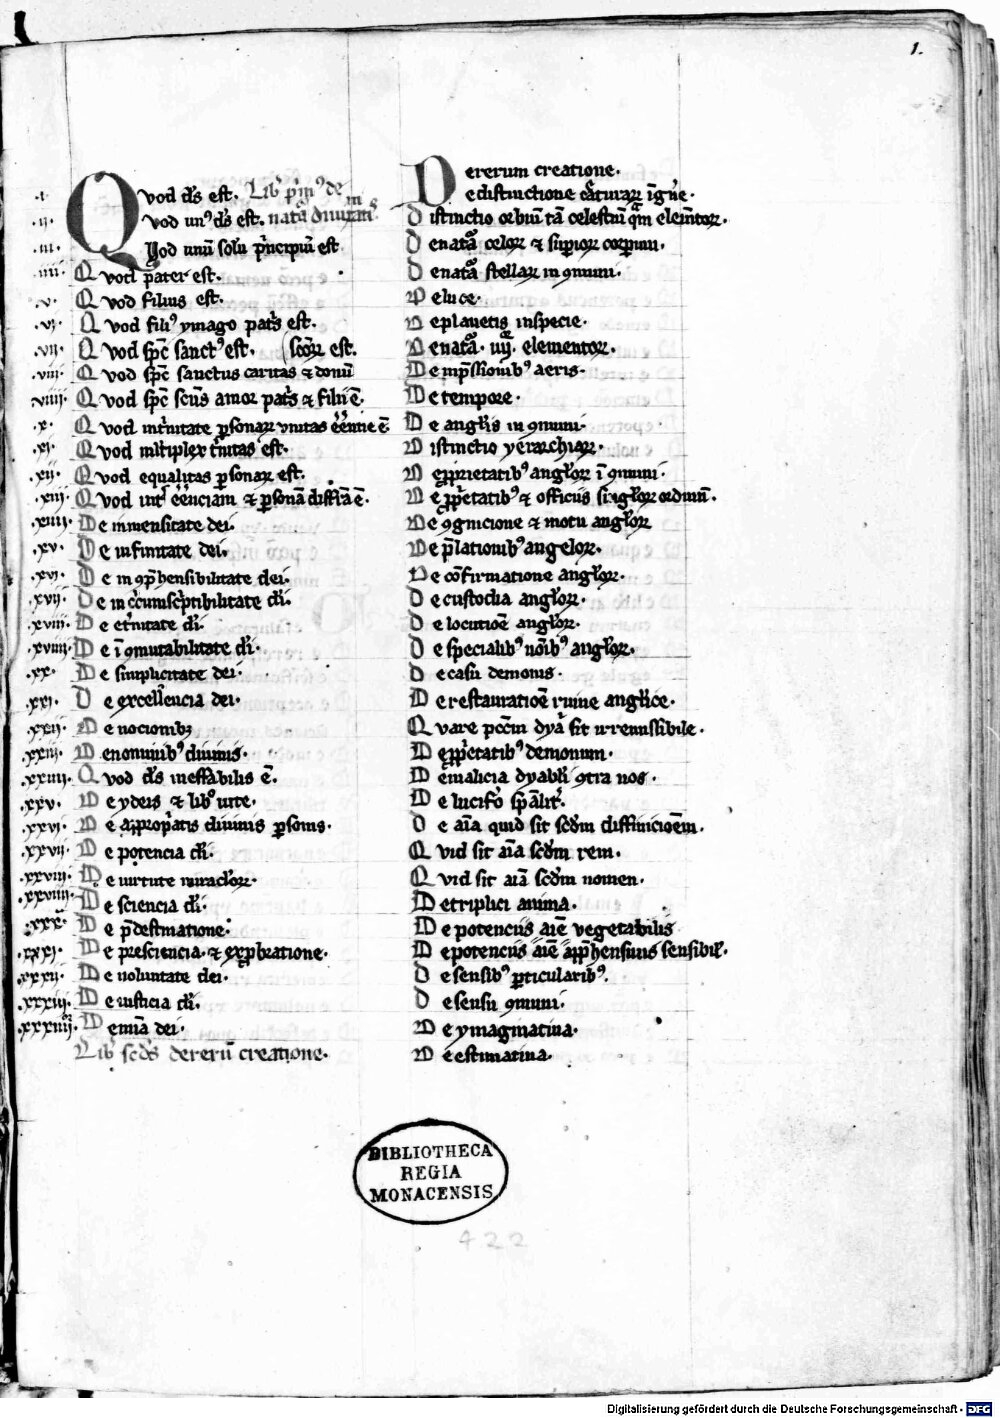 1.
.i. Quod ds̄ est. Lib' p'm' de
.ii. Quod un' ds̄ est. nat'a diuinis
.iii. Quod unū solū p'ncipiū est
.iiii. Quod pater est.
.v. Quod filius est.
.vi. Quod fili' ymago pat's est.
.vii. Quod spc̄ sanct' est.
.viii. Quod spc̄ sanctus caritas & donū (sctōꝝ est.
.viiii. Quod spc̄ scūs amor pat's & filii ē.
.x. Quod int'nitate p̲sonaꝝ unitas eēntie ē
.xi. Quod mltiplex t'nitas est.
.xii. Quod equalitas p̲sonaꝝ est.
.xiii. Quod int' eēnciam & p̲sonā diffr̄a ē.
.xiiii. De inmensitate dei.
.xv. De infinitate dei.
.xvi. De incōp̄hensibilitate dei.
.xvii. De inc'cumsc'ptibilitate di.
.xviii. De et'nitate di.
.xviiii. De īcōmutabilitate di.
.xx. De simplicitate dei.
.xxi. De excellencia dei.
.xxii. De nocionibꝫ
.xxiii. De nominib' diuinis.
.xxiiii. Quod ds̄ ineffabilis ē.
.xxv. De ydeis & libo uite.
.xxvi. De app̲rop'atis diuinis p̲sonis.
.xxvii. De potencia di.
.xxviii. De uirtute miraclōꝝ.
.xxviiii. De sciencia di.
.xxx. De p̄destinatione.
.xxxi. De presciencia. & exp̲bratione.
.xxxii. De uoluntate dei.
.xxxiii. De iusticia di.
.xxxiiii. De mīa dei.
Lib' scds̄ de rerū creatione.
De rerum creatione.
De distinctione c'aturaꝝ ī gn'e.
Distinctio orbiū tā celestiū qm̄ elemtoꝝ.
De nat'a celoꝝ & sup̲ioꝝ corp̲um.
De nat'a stellaꝝ in 9muni.
De luce.
De planetis in specie.
De nat'a .iiii. elementoꝝ.
De imp̄ssionib' aeris.
De tempore.
De angelis in 9muni.
Distinctio yerarchiaꝝ.
De p̲prietatib' angloꝝ ī 9muni.
De p̲p'etatib' & officiis singloꝝ ordinū.
De 9gnicione & motu angloꝝ
De p̄lationib' angeloꝝ.
De cōfirmatione angloꝝ.
De custodia angloꝝ.
De locutiōe angloꝝ.
De specialib' noīb' angloꝝ.
De casu demonis.
De restauratiōe ruine anglice.
Quare pcc̄m dyā sit irremissibile.
De p̲p'etatib' demonum.
De malicia dyabli 9tra nos.
De lucifo sp̄alit'.
De aīa quid sit scdm̄ diffiniciōem.
Quid sit aīa scdm̄ rem.
Quid sit aīa scdm̄ nomen.
De triplici anima.
De potenciis aīe vegetabilis
De potenciis aīe app̄hensiuis sensibil'.
De sensib' p̲ticularib'.
De sensu 9muni.
De ymaginatiua.
De estimatiua.
BIBLIOTHECA
REGIA
MONACENSIS
422
Digitalisierung gefördert durch die Deutsche Forschungsgemeinschaft - DFG